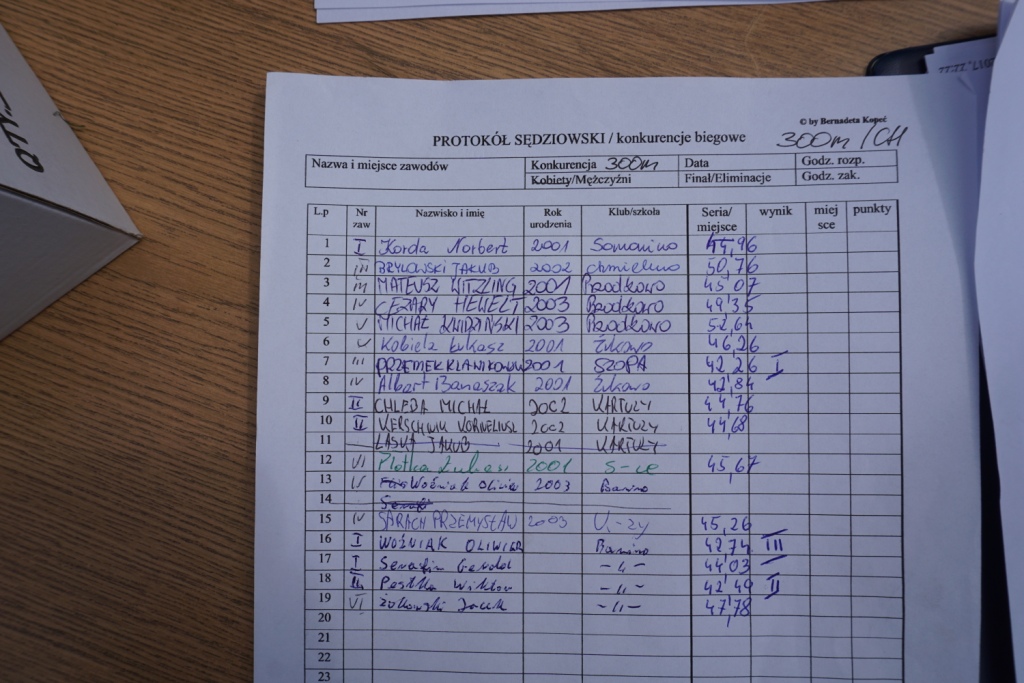 © by Bernadeta Kopeć
PROTOKÓŁ SĘDZIOWSKI / konkurencje biegowe 300m / CH
Nazwa i miejsce zawodów Konkurencja 300m Data Godz. rozp.
Kobiety/Mężczyźni Finał/Eliminacje Godz. zak.
L.p Nr zaw Nazwisko i imię Rok urodzenia Klub/szkoła Seria/ miejsce wynik miej sce punkty
1 I Korda Norbert 2001 Somonino 44,96
2 III BRYLOWSKI JAKUB 2002 Chmielno 50,76
3 III MATEUSZ WITZLING 2001 Brodkowo 45,07
4 IV CEZARY HEWELT 2003 Brodkowo 49,35
5 V MICHAŁ 2003 Brodkowo 52,64
6 V Kobiela Łukasz 2001 Żukowo 46,26
7 III PRZEMEK 2001 SZOPA 42,26 I
8 IV Albert Banaszak 2001 Żukowo 42,84
9 II CHLEBA MICHAŁ 2002 KARTUZY 44,76
10 II KERSCHWIN KORNELIUSZ 2002 KARTUZY 44,68
11 LASKA JAKUB 2001 KARTUZY
12 VI Plotka Łukasz 2001 S-ce 45,67
13 IV Woźniak Oliwier 2003 Banino
14
15 IV SARACH PRZEMYSŁAW 2003 K-zy 45,26
16 I WOŹNIAK OLIWIER Banino 42,74 III
17 I Serafin - 11 - 44,03
18 III Pestka Wiktor - 11 - 42,49 II
19 VI Żukowski Jacek - 11 - 47,78
20
21
22
23